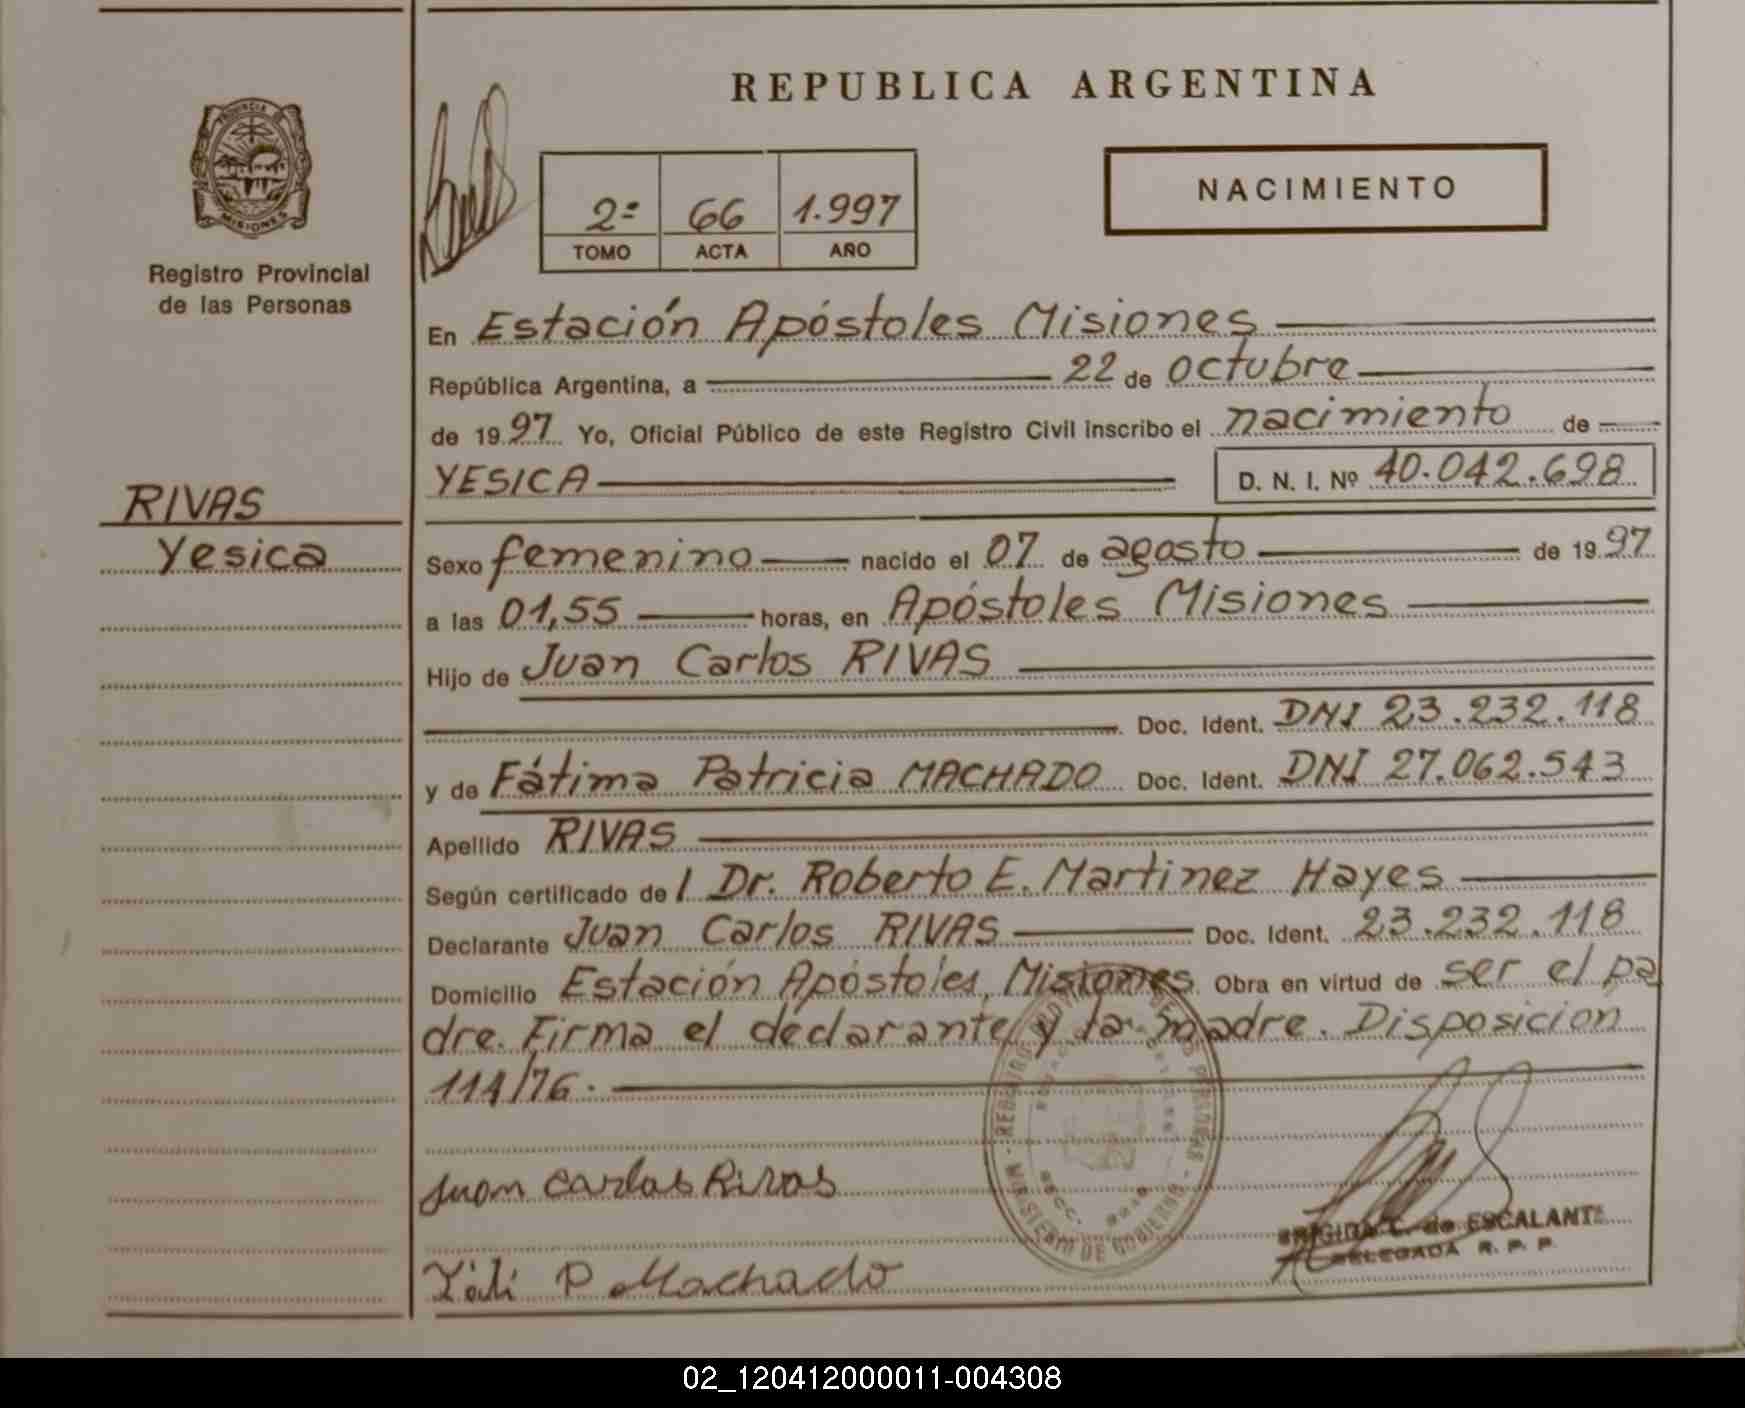 REPUBLICA ARGENTINA
PROVINCIA DE
MISIONES
Registro Provincial
de las Personas
2º 66 1.997
TOMO ACTA AÑO
NACIMIENTO
En Estación Apóstoles Misiones
República Argentina, a 22 de octubre
de 1997 Yo, Oficial Público de este Registro Civil inscribo el nacimiento de
YESICA D. N. I. Nº 40.042.698
RIVAS
Yesica
Sexo femenino nacido el 07 de agosto de 1997
a las 01,55 horas, en Apóstoles Misiones
Hijo de Juan Carlos RIVAS
Doc. Ident. DNI 23.232.118
y de Fátima Patricia MACHADO Doc. Ident. DNI 27.062.543
Apellido RIVAS
Según certificado de l Dr. Roberto E. Martinez Hayes
Declarante Juan Carlos RIVAS Doc. Ident. 23.232.118
Domicilio Estación Apóstoles, Misiones Obra en virtud de ser el pa
dre. Firma el declarante y la madre. Disposición
114/76.
Juan Carlos Rivas
P Machado
MINISTERIO DE GOBIERNO
ESCALANTE
DELEGADA R. P. P.
02_120412000011-004308